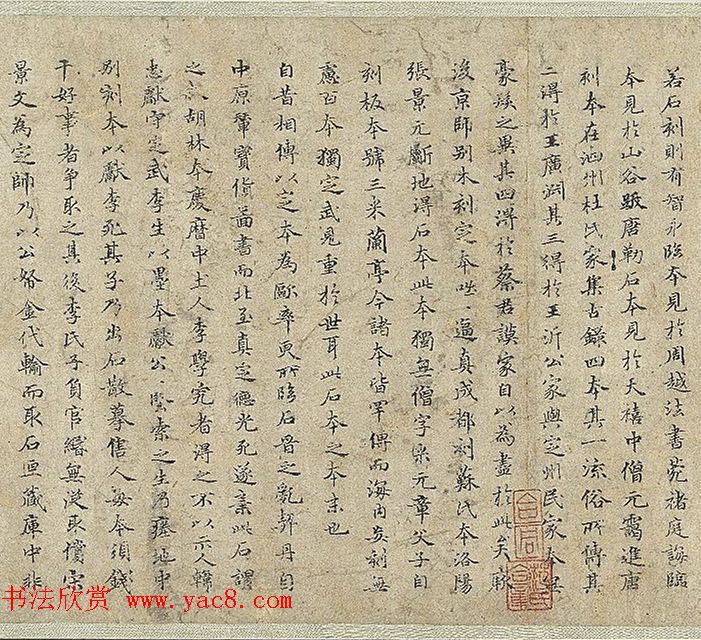 若石刻則有智永臨本見於周越法書苑褚庭誨臨
本見於山谷跋唐勒石本見於天禧中僧元靄進唐
刻本在泗州杜氏家集古錄四本其一流俗所傳其
二得於王廣淵其三得於王沂公家與定州民家本無
豪髮之異其四得於蔡君謨家自以為盡於此矣歐
後京師別木刻定本咄〻逼真成都刻蘇氏本洛陽
張景元斸地得石本此本獨無僧字米元章父子自
刻板本號三米蘭亭今諸本皆罕傳而海內妄刻無
慮百本獨定武見重於世耳此石本之本末也
自昔相傳以定本為歐率更所臨石晉之亂契丹自
中原輦寶貨圖書而北至真定德光死遂棄此石謂
之胡林本慶曆中土人李學究者得之不以示人韓
忠獻守定武李生以墨本獻公〻堅索之生乃瘞地中
別刻本以獻李死其子乃出石散摹售人每本須錢
干好事者爭取之其後李氏子負官緡無從取償宋
景文為定帥乃以公帑金代輸而取石匣藏庫中非
书法欣赏 www.yac8.com